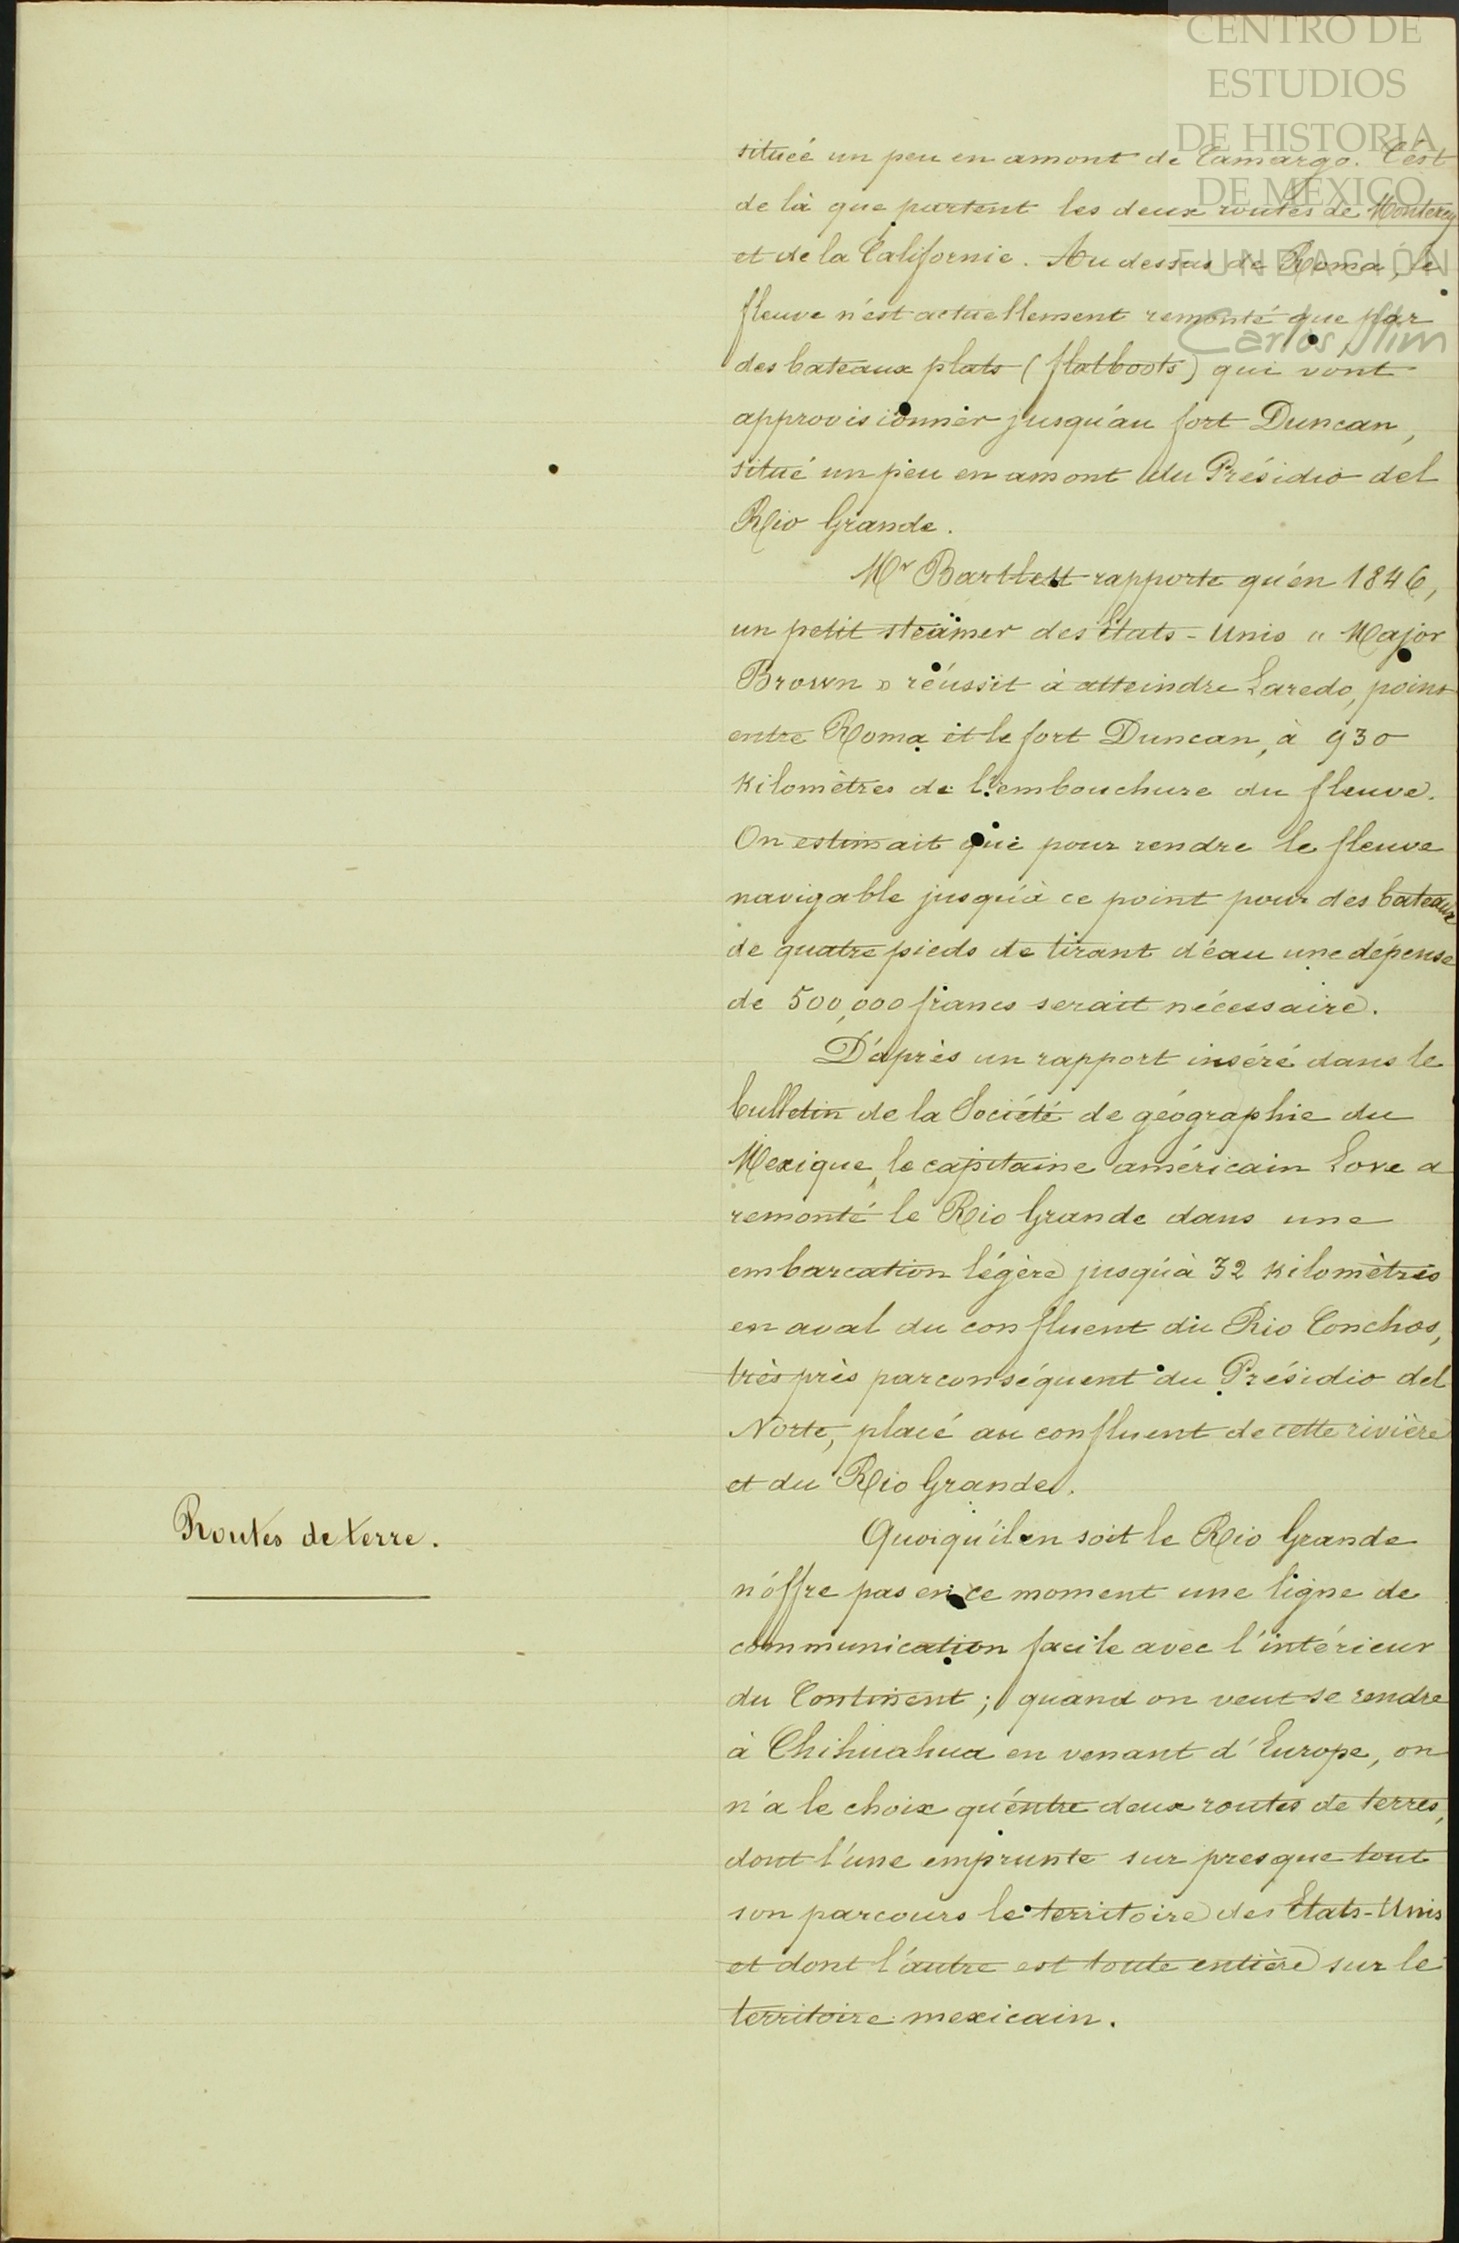 CENTRO DE
ESTUDIOS
DE HISTORIA
DE MÉXICO
FUNDACIÓN
Carlos Slim
située un peu en amont de Camargo. C'est
de là que partent les deux routes de Monterey
et de la Californie. Au dessus de Roma, le
fleuve n'est actuellement remonté que par
des bateaux plats (flatboots) qui vont
approvisionner jusqu'au fort Duncan,
situé un peu en amont du Présidio del
Rio Grande.
Mr Bartlett rapporte qu'en 1846,
un petit steamer des Etats-Unis " Major
Brown » réussit à atteindre Laredo, point
entre Roma et le fort Duncan, à 930
kilomètres de l'embouchure du fleuve.
On estimait que pour rendre le fleuve
navigable jusqu'à ce point pour des bateaux
de quatre pieds de tirant d'eau une dépense
de 500,000 francs serait nécessaire.
D'après un rapport inséré dans le
bulletin de la Société de géographie du
Mexique, le capitaine américain Love a
remonté le Rio Grande dans une
embarcation légère jusqu'à 32 kilomètres
en aval du confluent du Rio Conchos,
très près parconséquent du Présidio del
Norte, placé au confluent de cette rivière
et du Rio Grande.
Routes de terre.
Quoiqu'il en soit le Rio Grande
n'offre pas en ce moment une ligne de
communication facile avec l'intérieur
du Continent ; quand on veut se rendre
à Chihuahua en venant d'Europe, on
n'a le choix qu'entre deux routes de terres,
dont l'une emprunte sur presque tout
son parcours le territoire des Etats-Unis
et dont l'autre est toute entière sur le
territoire mexicain.